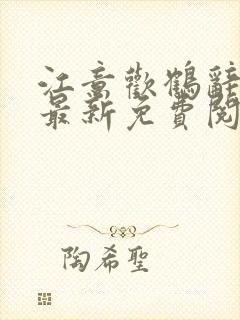 江童歡鶴辭
最新免費閱
陶希聖